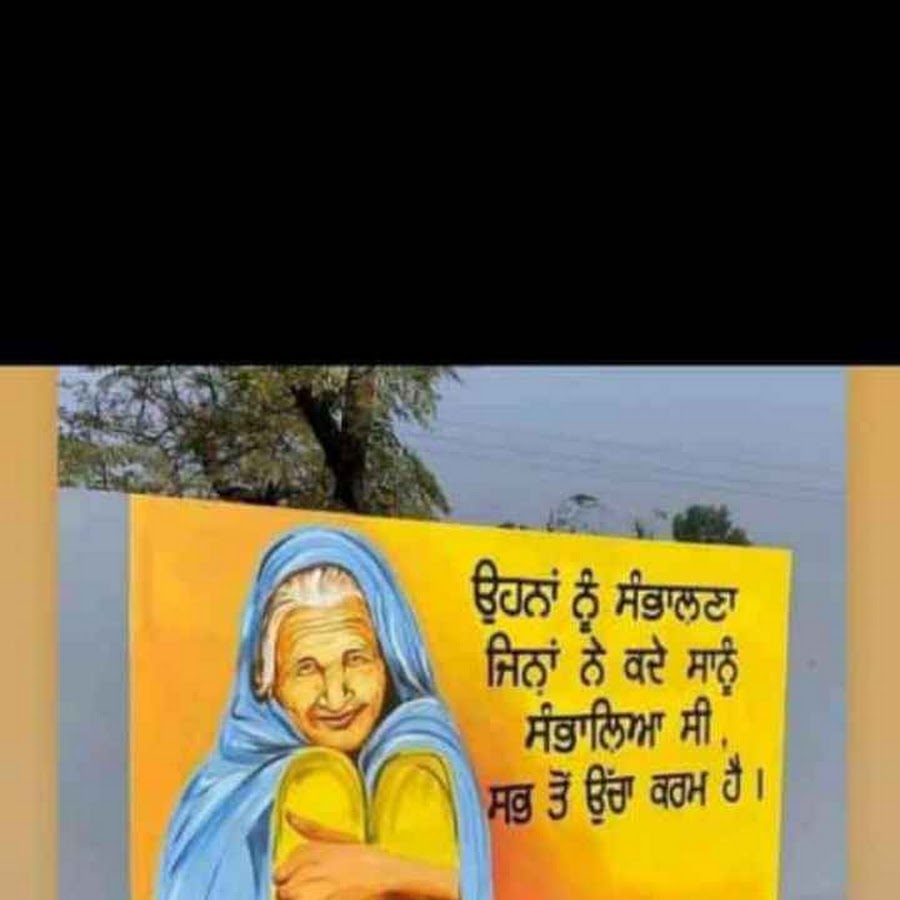 ਉਹਨਾਂ ਨੂੰ ਸੰਭਾਲਣਾ
ਜਿਨ੍ਹਾਂ ਨੇ ਕਦੇ ਸਾਨੂੰ
ਸੰਭਾਲਿਆ ਸੀ,
ਸਭ ਤੋਂ ਉੱਚਾ ਕਰਮ ਹੈ।